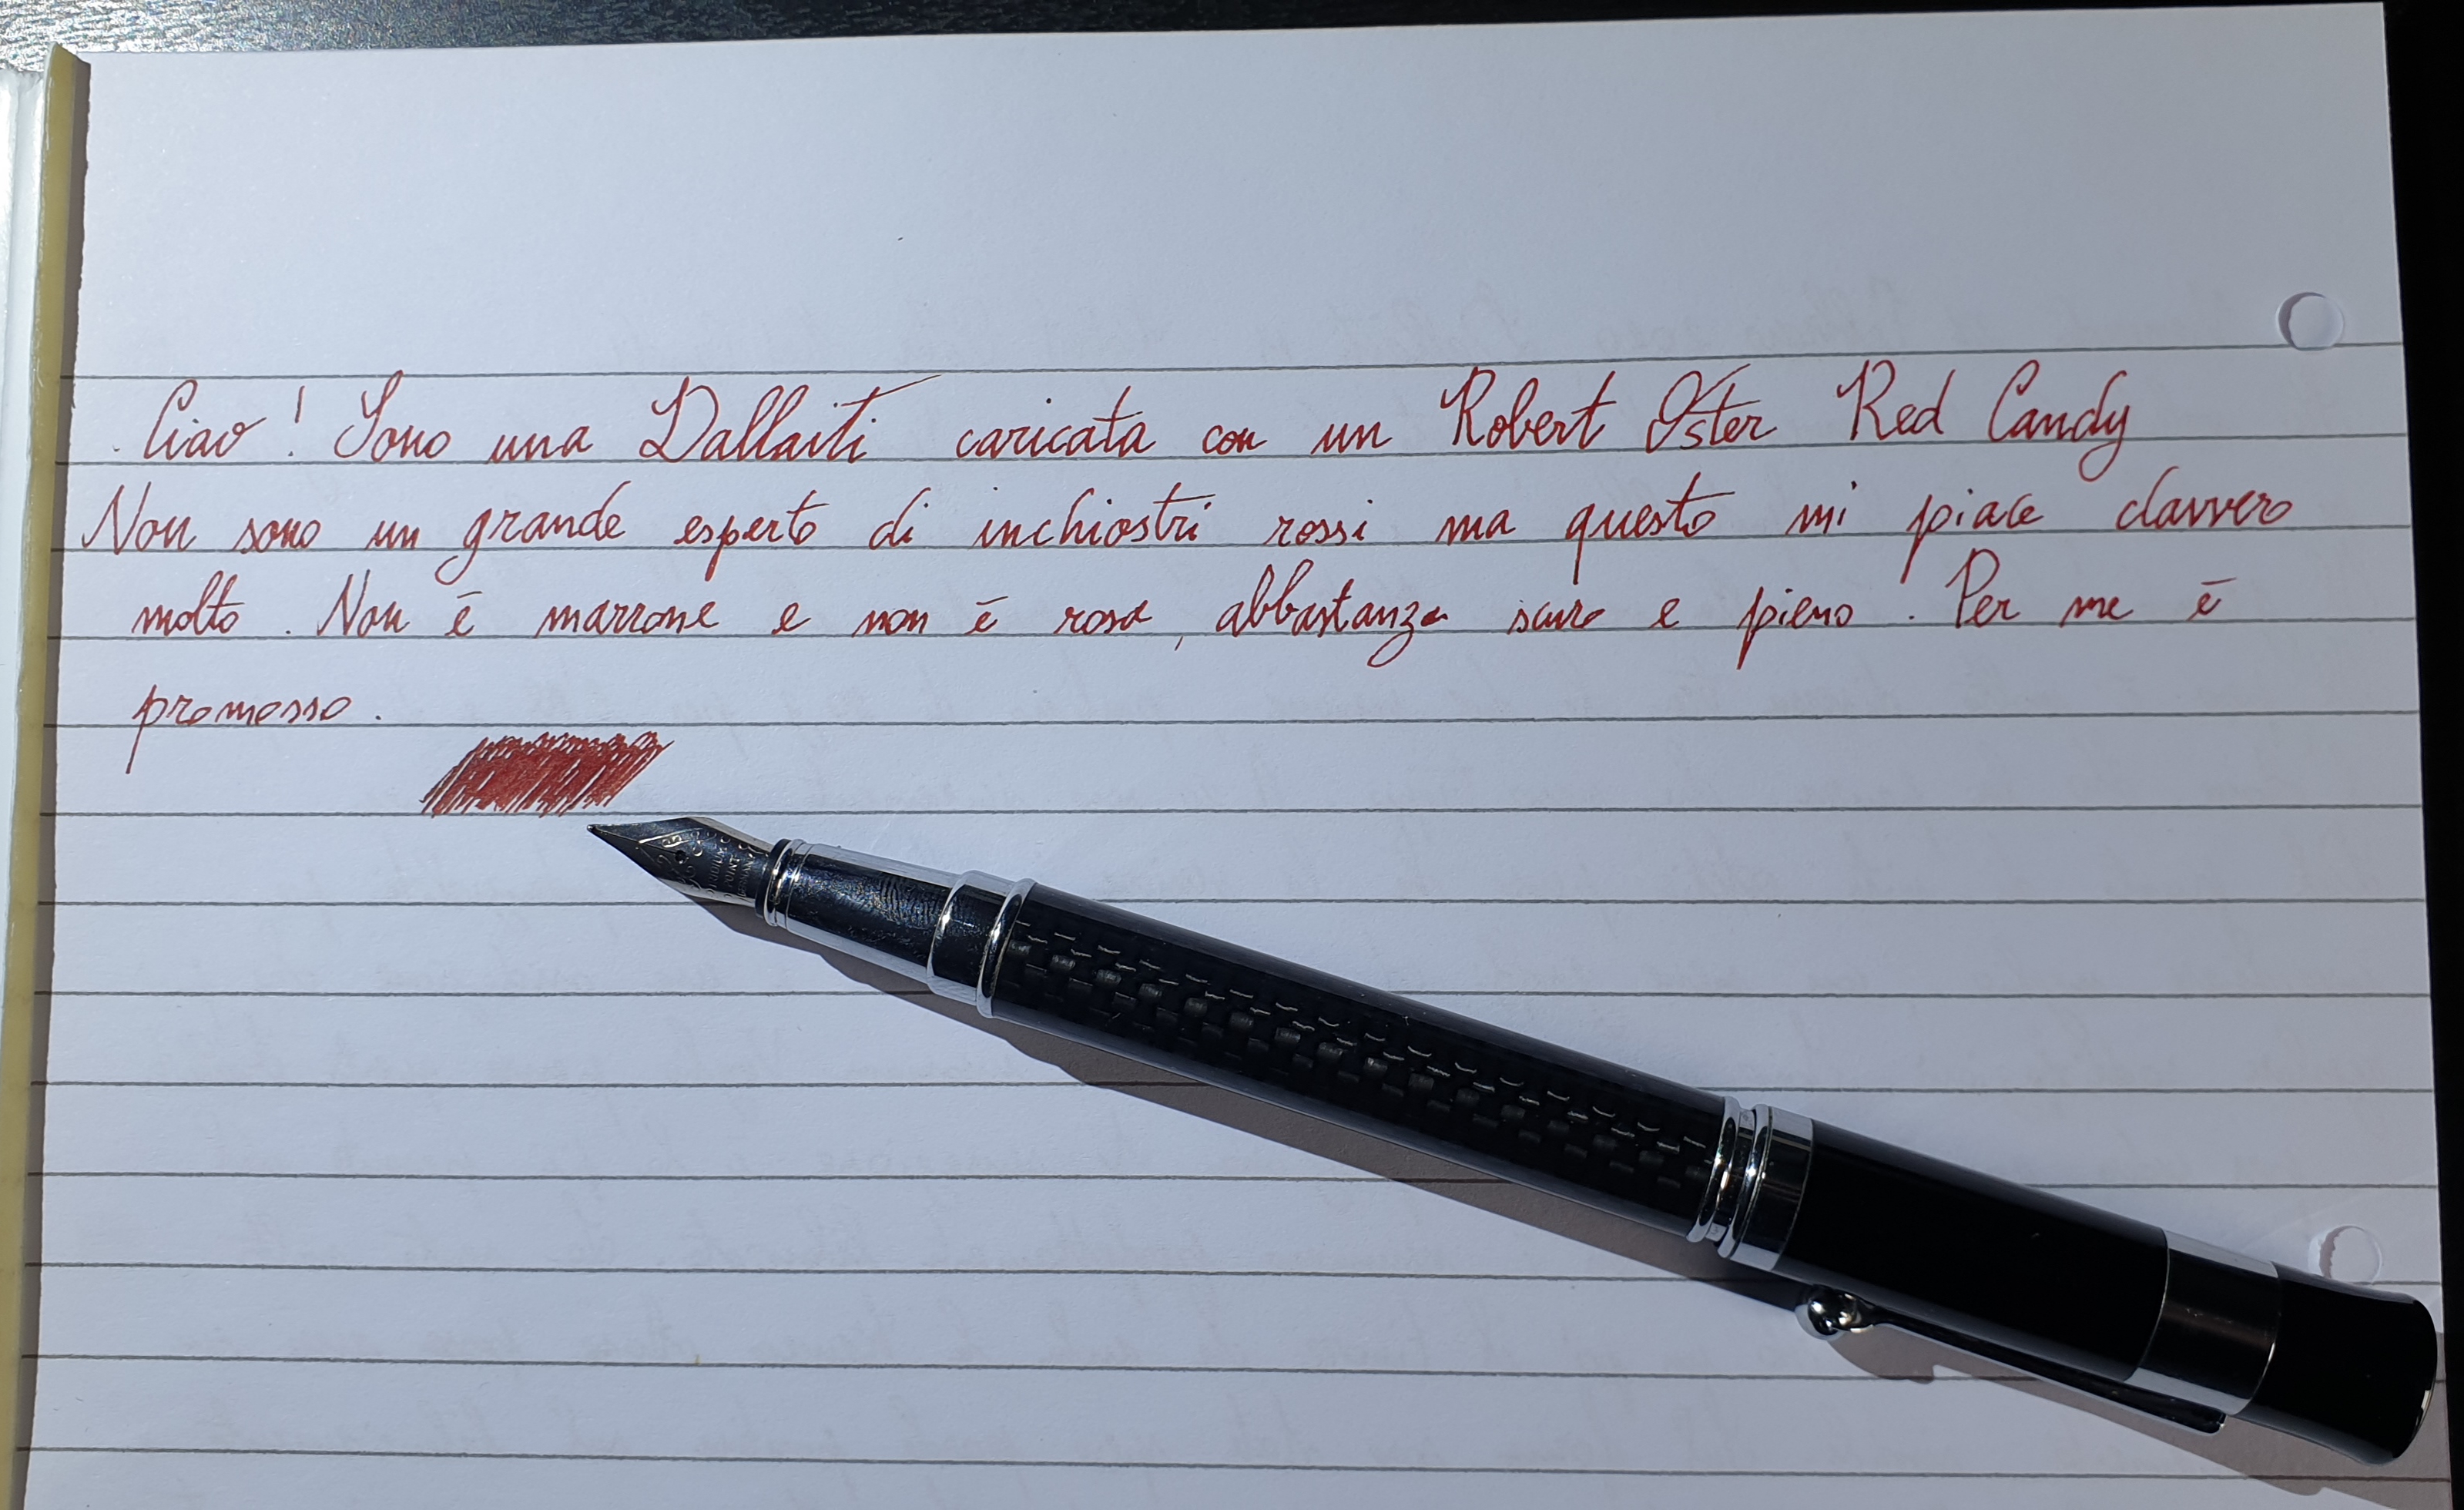 Ciao! Sono una Dallaiti caricata con un Robert Oster Red Candy
Non sono un grande esperto di inchiostri rossi ma questo mi piace davvero
molto. Non è marrone e non è rosa, abbastanza scuro e pieno. Per me è
promosso.